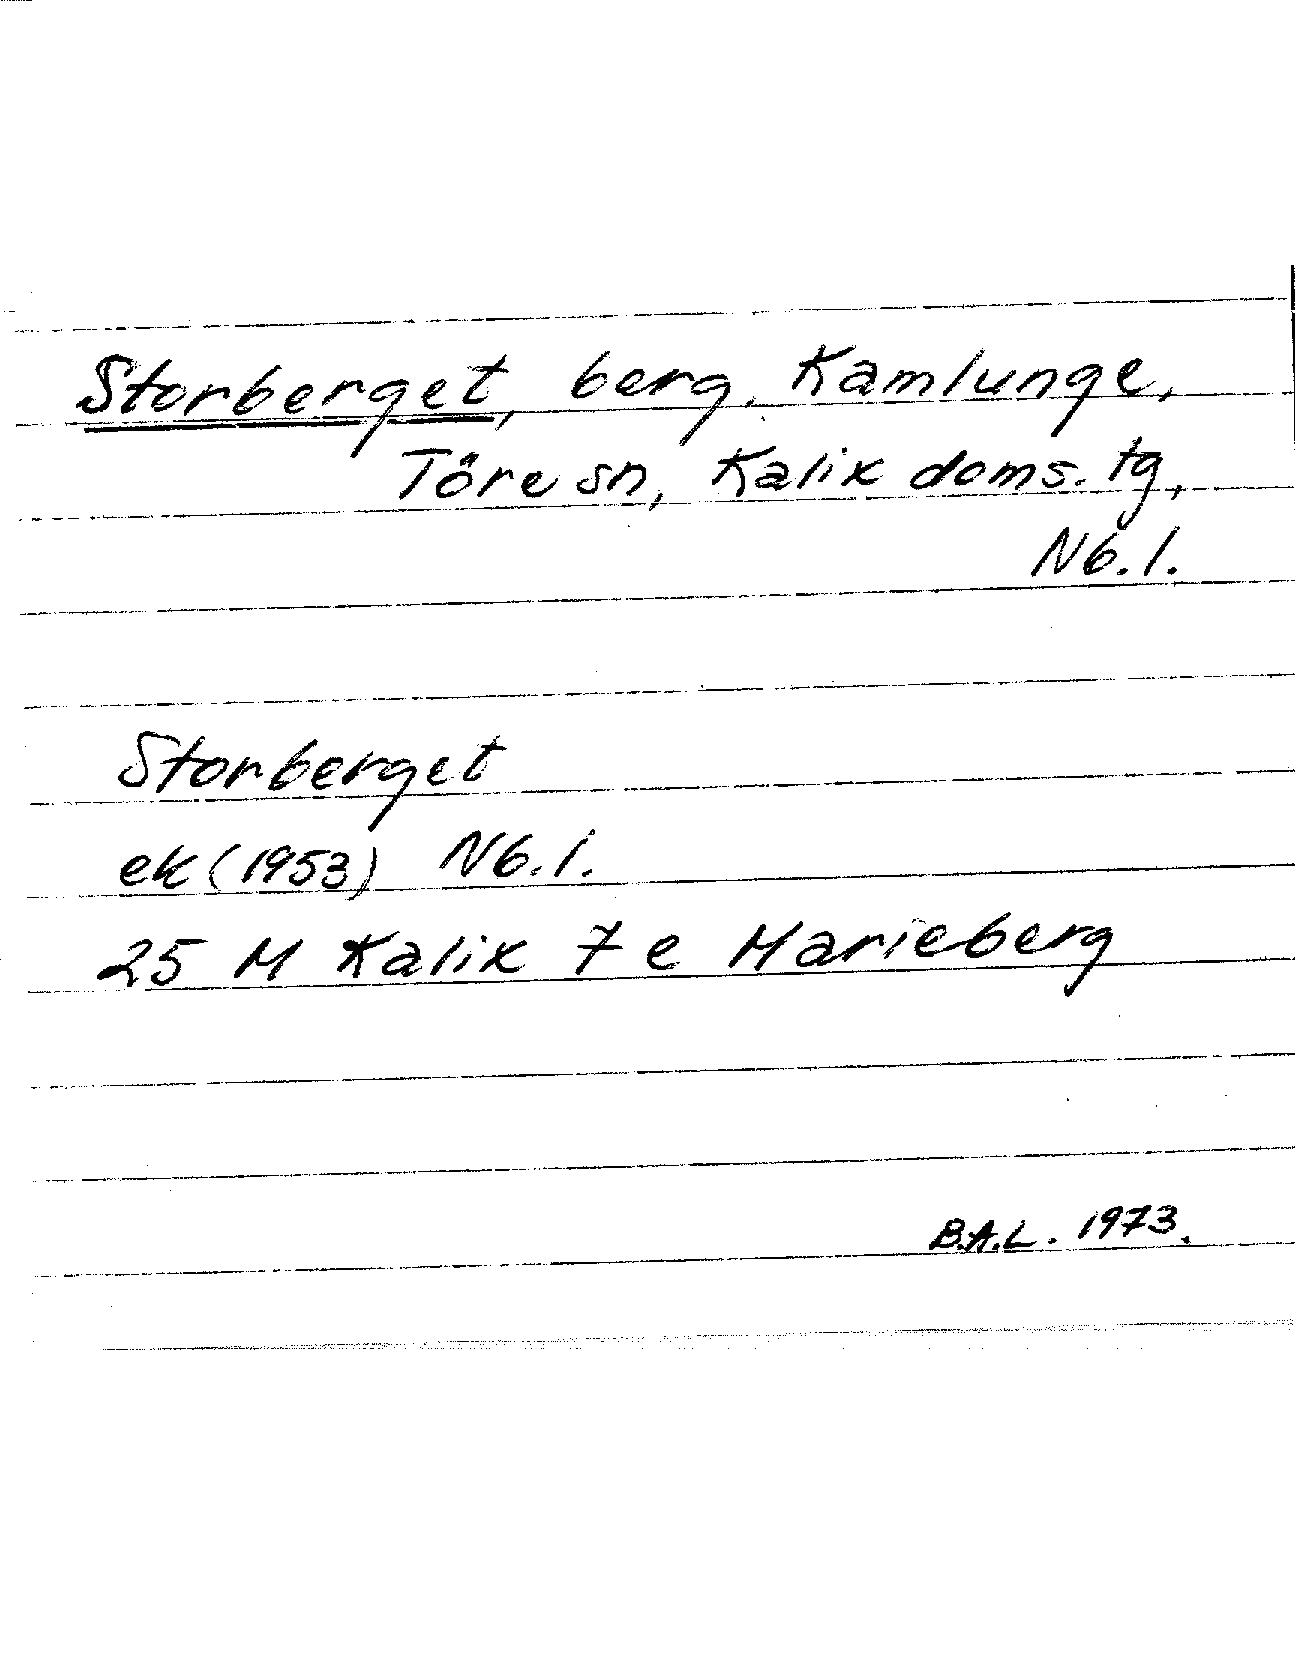 Storberget, berg, Kamlunge,
Töre sn, Kalix doms. tg,
Nb. l.
Storberget
ek (1953) Nb. l.
25 M Kalix 7 e Marieberg
B.A.L. 1973.